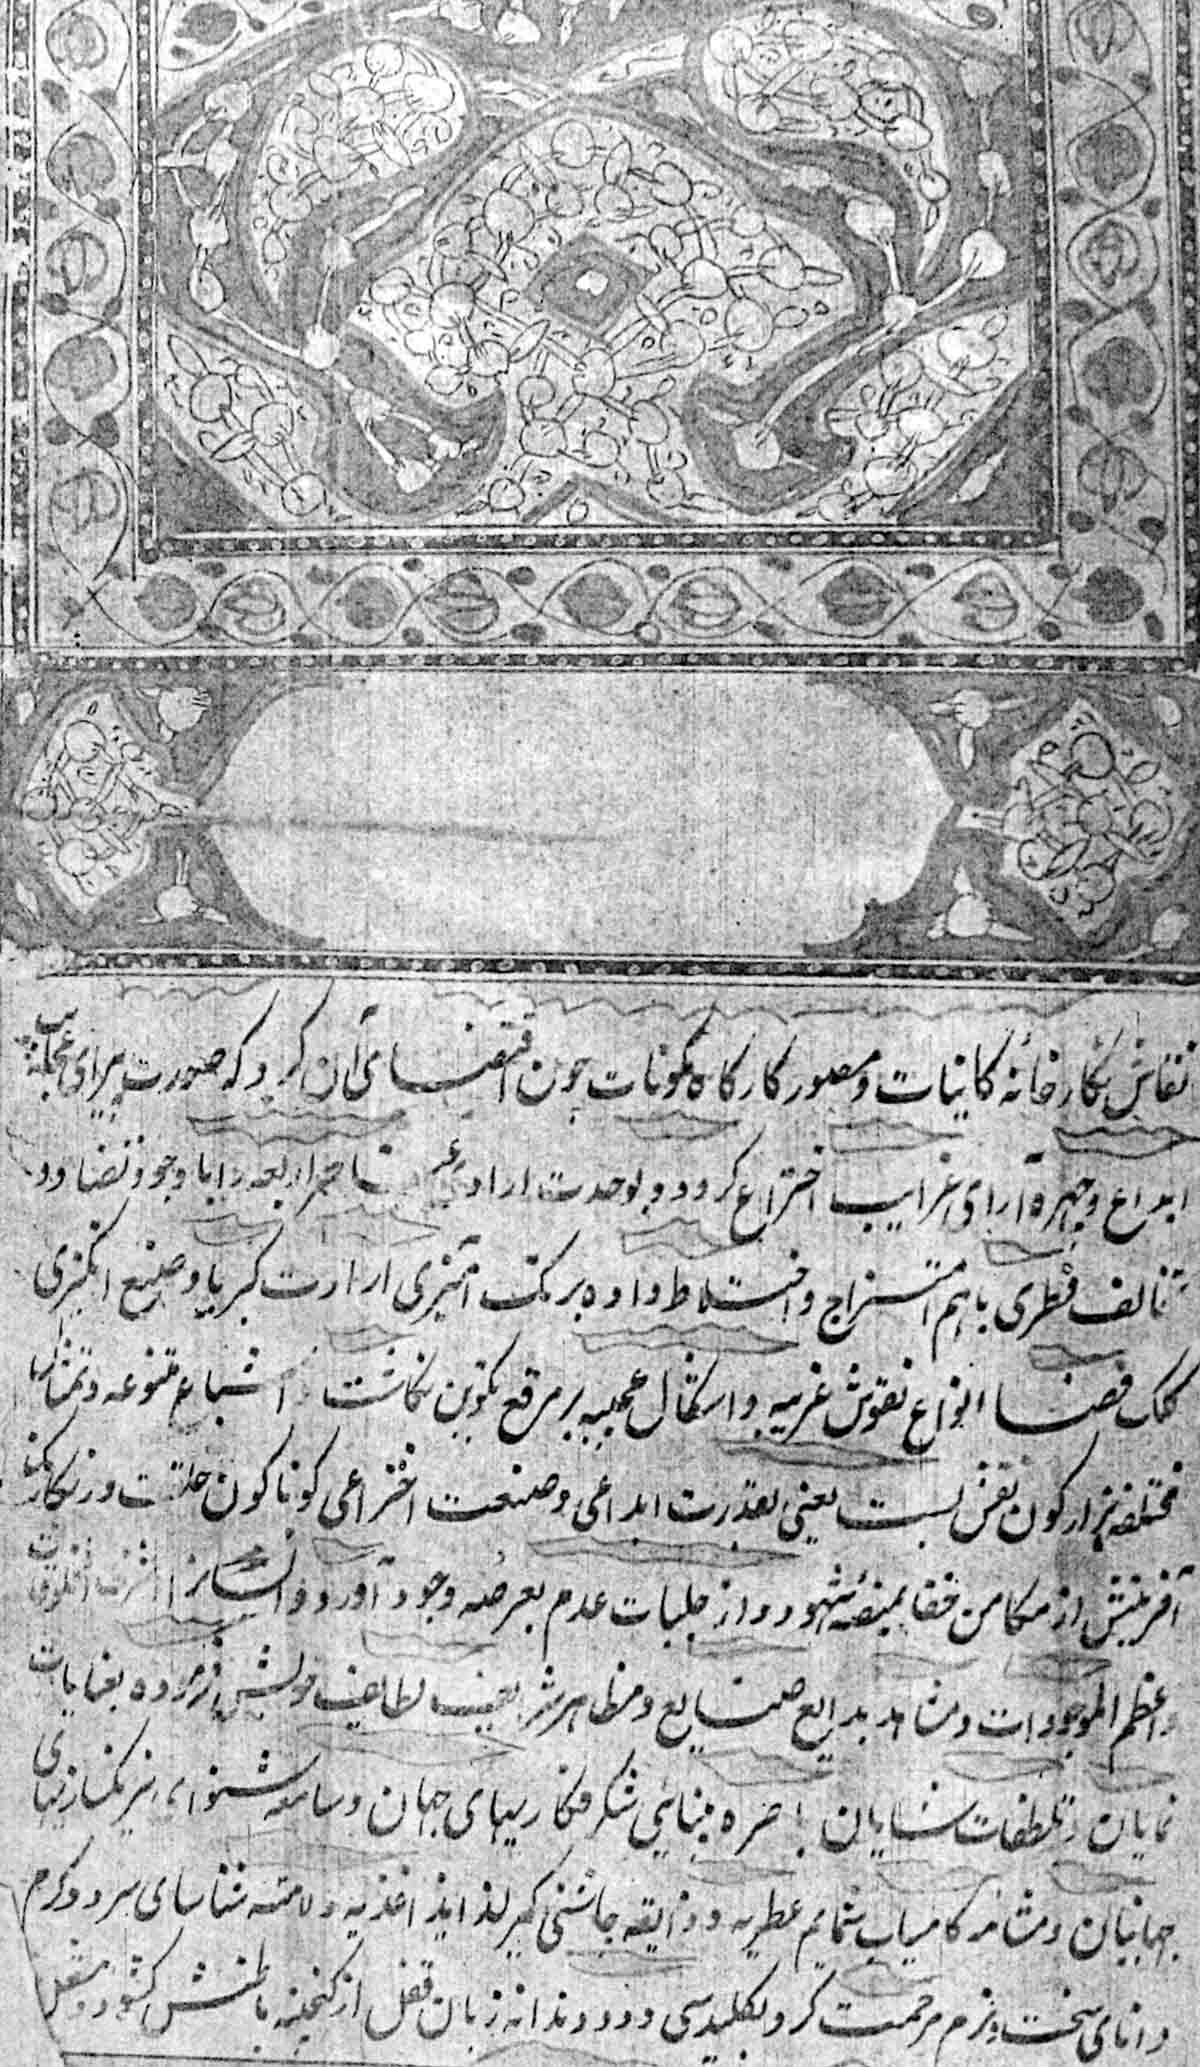 نقاش نگارخانه کاینات و مصور کارگاه مکونات چون اقتضای آن کرد که صورت پیرای عجایب
ابداع و چهره آرای غرایب اختراع گردد بوحدت ارادی عناصر اربعه را با وجود تضاد و
تالف فطری باهم امتزاج و اختلاط داده برنک آمیزی ارادت کبریا و صنع انگیزی
کلک قضا انواع نقوش غریبه و اشکال عجیبه بر مرقع تکوین نگاشت اشباع متنوعه و تماثیل
مختلفه هزار گون نقش بست یعنی بقدرت ابداعی و صنعت اختراعی گوناگون خلقت و رنگارنگ
آفرینش از مکامن خفا بمنصهٔ شهود و از جلباب عدم بعرصه وجود آورد و انسانرا اشرف المخلوقات
و اعظم الموجودات و مشاهد بدایع صنایع و مظاهر شرایف لطایف خویش فرموده بعنایات
نمایان و تلطفات شایان باصره بینای شگرفکاریهای جهان و سامعه شنوای نیرنگسازیهای
جهانیان و مشامه کامیاب شمایم عطریه و ذایقه چاشنی گیر لذایذ اغذیه و لامسه شناسای سرد و گرم
و دانای سخت و نرم مرحمت کرد بکلید سی و دو دندانه زبان قفل از گنجینه باطنش گشود و مشعل